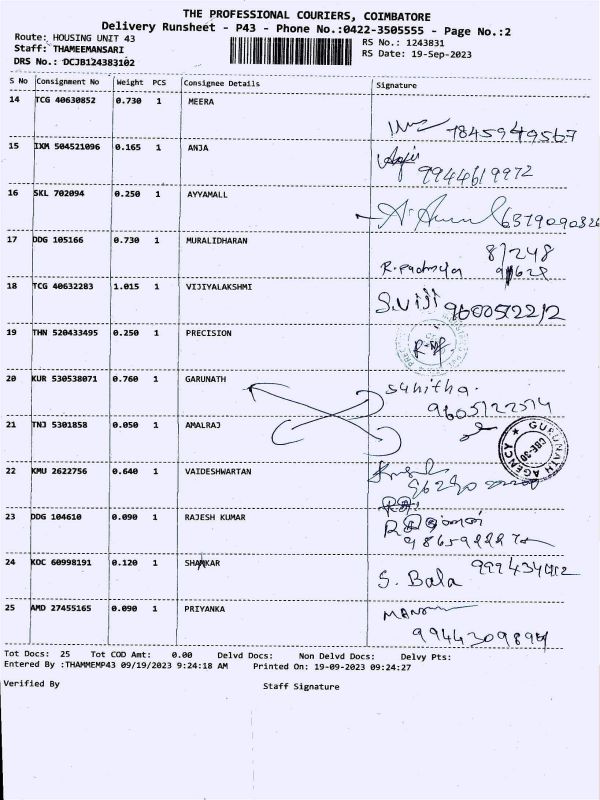 THE PROFESSIONAL COURIERS, COIMBATORE
Delivery Runsheet - P43 - Phone No.:0422-3505555 - Page No.:2
Route: HOUSING UNIT 43
RS No.: 1243831
Staff: THAMEEMANSARI
RS Date: 19-Sep-2023
DRS No.: DCJB124383102
S No Consignment No Weight PCS Consignee Details Signature
14 TCG 40630852 0.730 1 MEERA
7845949567
15 IXM 504521096 0.165 1 ANJA
9944619972
16 SKL 702094 0.250 1 AYYAMALL
6379090326
17 DDG 105166 0.730 1 MURALIDHARAN
81248
R.padmja 91628
18 TCG 40632283 1.015 1 VIJIYALAKSHMI
S.Viji 9600572212
19 THN 520433495 0.250 1 PRECISION
20 KUR 530538071 0.760 1 GARUNATH
Sunitha.
9605122514
21 TNJ 5301858 0.050 1 AMALRAJ
GURUNATH AGENCY CBE-30
22 KMU 2622756 0.640 1 VAIDESHWARTAN
96290
23 DDG 104610 0.090 1 RAJESH KUMAR
24 KOC 60998191 0.120 1 SHANKAR
S. Bala
25 AMD 27455165 0.090 1 PRIYANKA
Tot Docs: 25 Tot COD Amt: 0.00 Delvd Docs: Non Delvd Docs: Delvy Pts:
Entered By :THAMMEMP43 09/19/2023 9:24:18 AM Printed On: 19-09-2023 09:24:27
Verified By Staff Signature